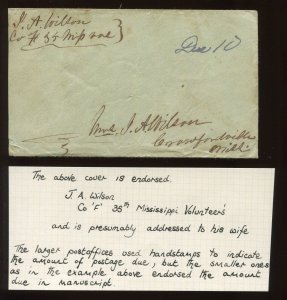 J. A Wilson
Co F 35 Mp vol
Due 10
Mrs J. A Wilson
Crawfordville
Miss.
The above cover is endorsed.
J. A. Wilson
Co 'F' 35th Mississippi Volunteers
and is presumably addressed to his wife
The larger postoffices used handstamps to indicate
the amount of postage due, but the smaller ones
as in the example above endorsed the amount
due in manuscript.